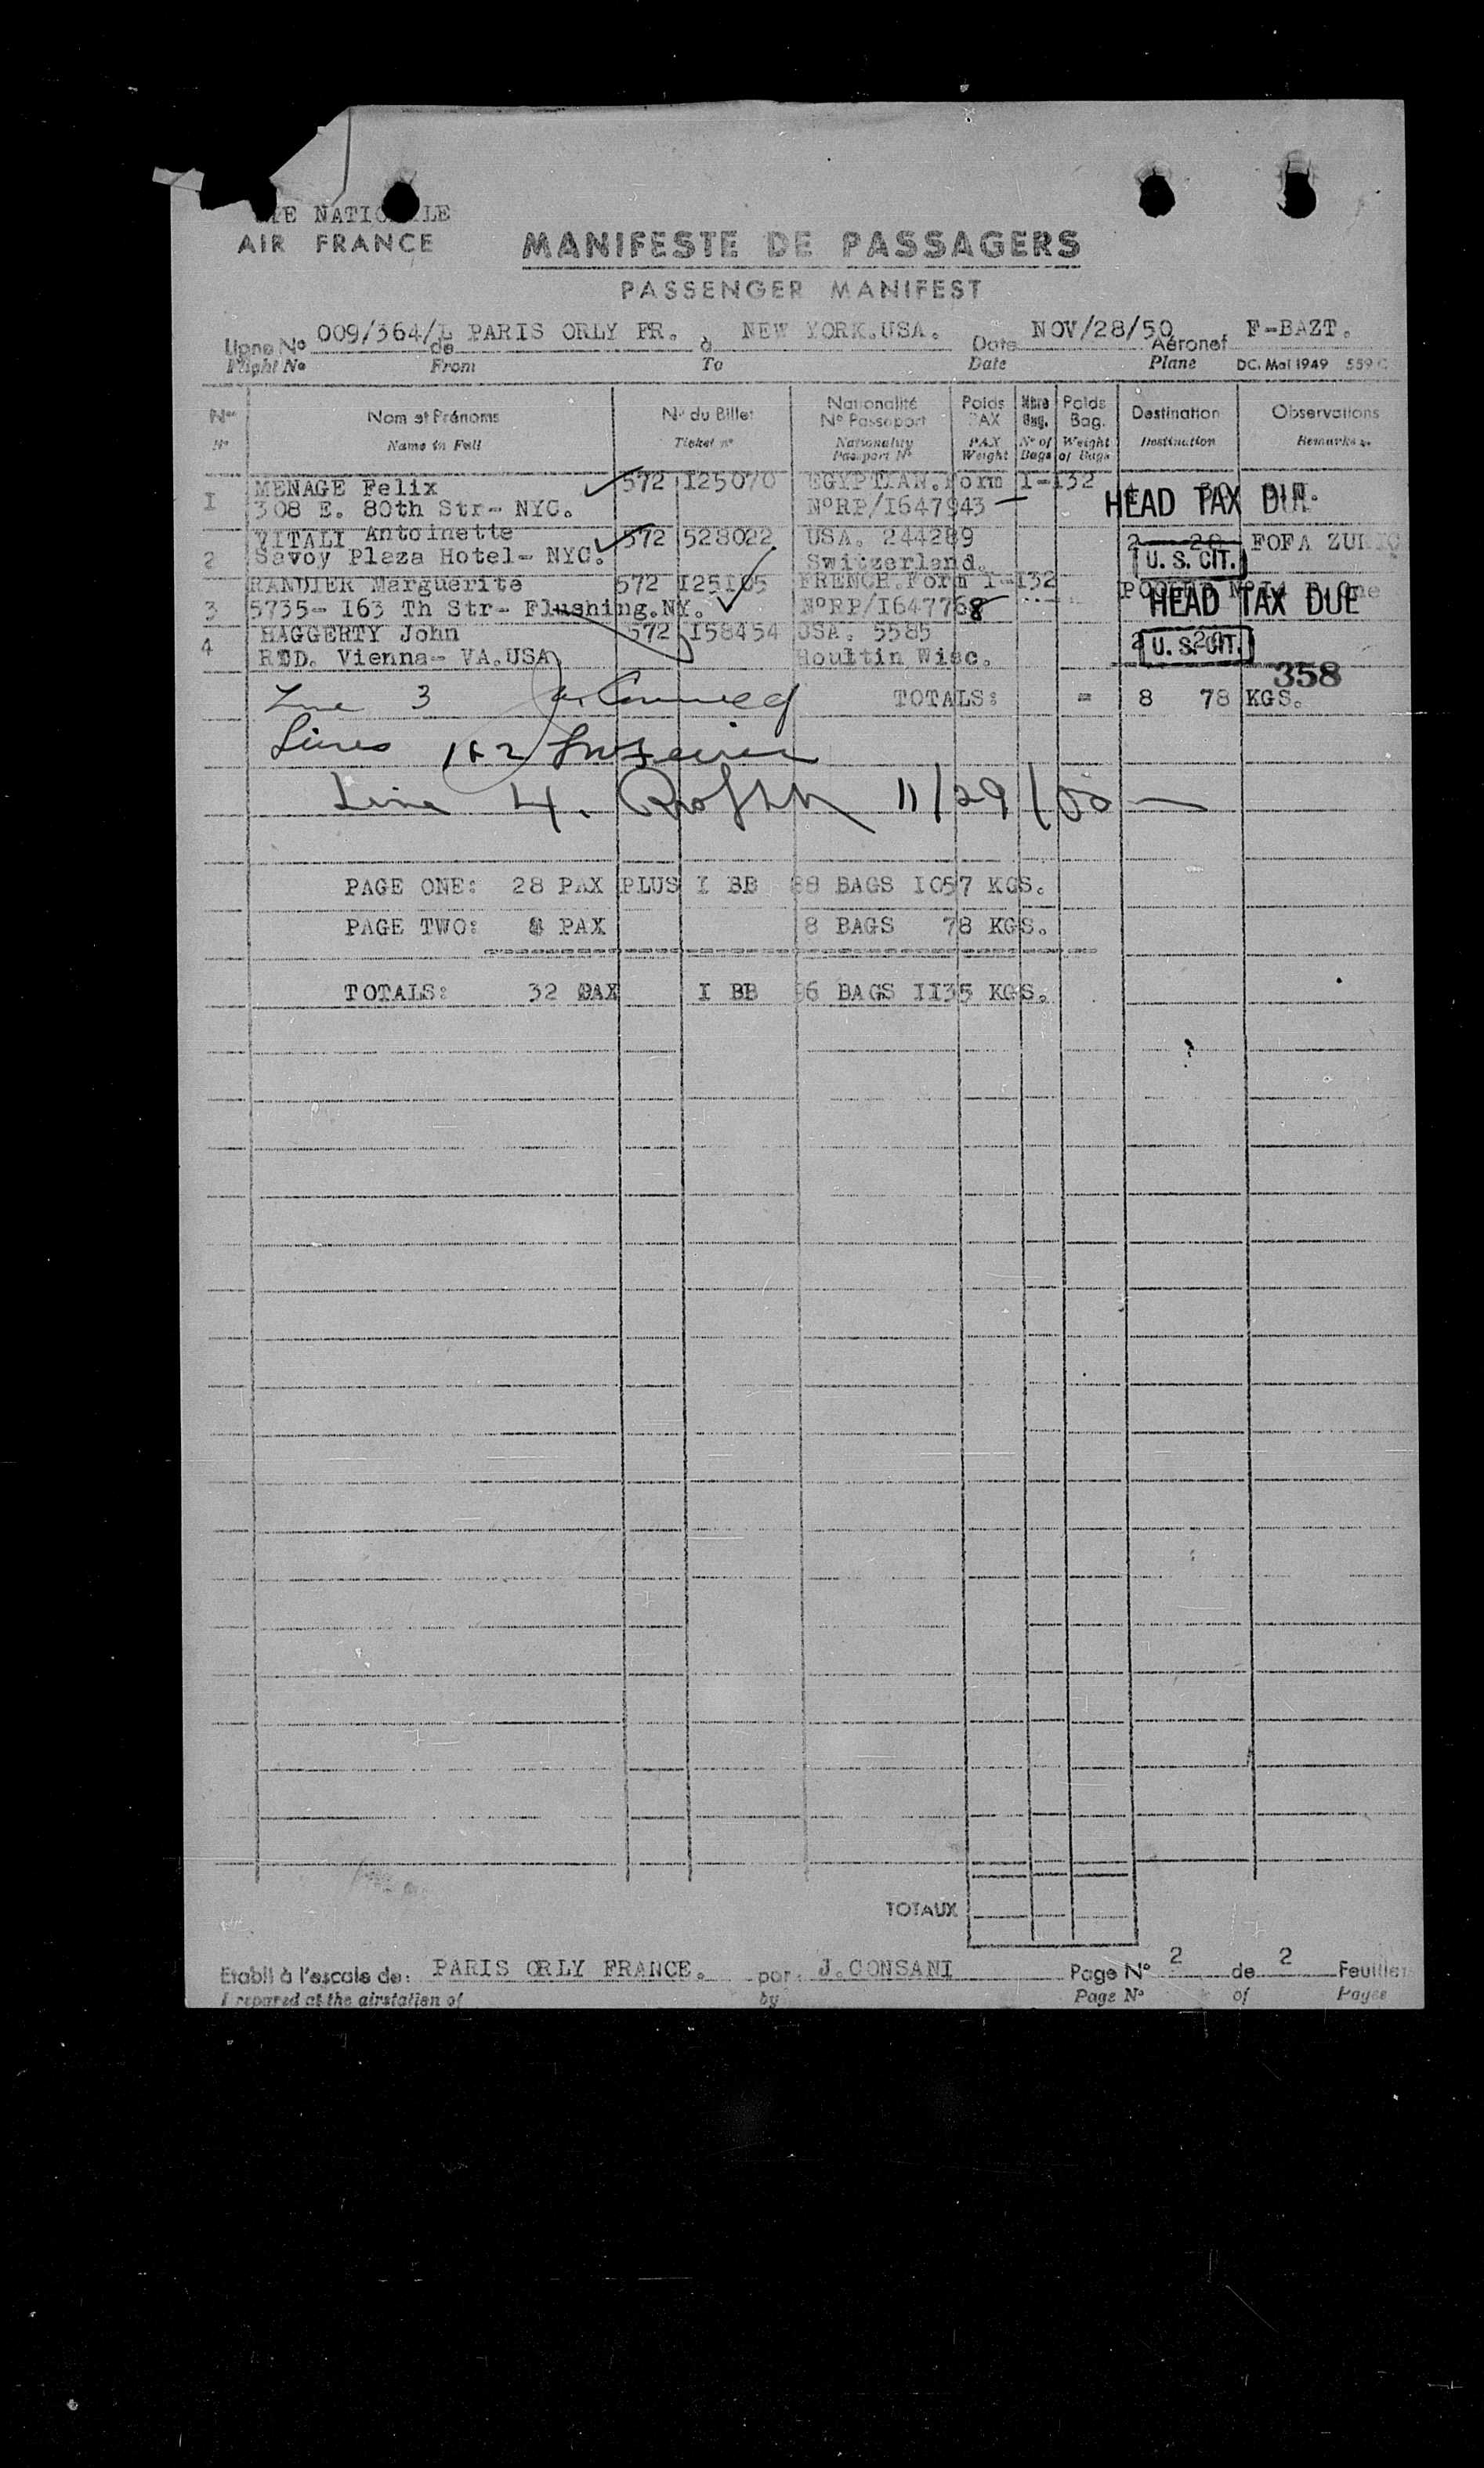 NATIONALE
AIR FRANCE
MANIFESTE DE PASSAGERS
PASSENGER MANIFEST
Ligne No 009/364/L de PARIS ORLY FR. à NEW YORK.USA. Date NOV/28/50 Aéronef F-BAZT.
Flight No From To Date Plane DC. Mai 1949 559 C
Nos Nom et Prénoms No du Billet Nationalité No Passeport Poids PAX Nbre Bag. Poids Bag. Destination Observations
No Name in Full Ticket no Nationality Passport No PAX Weight No of Bags Weight of Bags Destination Remarks
1 MENAGE Felix 572 I25070 EGYPTIAN.Form I-I32
308 E. 80th Str- NYC. NoRP/I647943 HEAD TAX DUE
VITALI Antoinette 572 528022 USA. 244289 2 20 FOFA ZURIC
2 Savoy Plaza Hotel- NYC. Switzerland. U. S. CIT.
RANDIER Marguerite 572 I25I05 FRENCH.Form I-I32
3 5735- I63 Th Str- Flushing.NY. NoRP/I647768 HEAD TAX DUE
HAGGERTY John 572 I58454 USA. 5585 2 20
4 RTD. Vienna- VA.USA Houltin Wisc. U. S. CIT.
358
Line 3 TOTALS: = 8 78 KGS.
Lines 1 & 2
Line 4. 11/29/50
PAGE ONE: 28 PAX PLUS I BB 88 BAGS I057 KGS.
PAGE TWO: 4 PAX 8 BAGS 78 KGS.
TOTALS: 32 PAX I BB 96 BAGS II35 KGS.
TOTAUX
Etabli à l'escale de: PARIS ORLY FRANCE. par: J.CONSANI Page No 2 de 2 Feuilles
Prepared at the airstation of by Page No of Pages